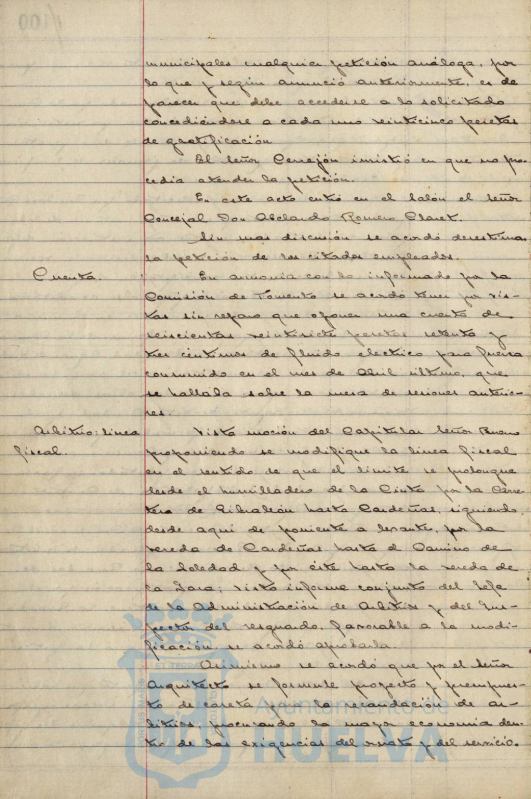 municipales cualquier petición análoga, por
lo que y según anunció anteriormente, es de
parecer que debe accederse a lo solicitado
concediéndose a cada uno veinticinco pesetas
de gratificación.
El señor Cerrejón insistió en que no pro-
cedía atender la petición.
En este acto entró en el salón el señor
Concejal Don Abelardo Romero Claret.
Sin mas discusión se acordó desestimar
la petición de los citados empleados.
Cuenta.
En armonia con lo informado por la
Comisión de Fomento se acordó tener por vis-
tas sin reparo que oponer una cuenta de
seiscientas veintisiete pesetas setenta y
tres céntimos de fluido electrico para fuerza
consumido en el mes de Abril último, que
se hallaba sobre la mesa de sesiones anterio-
res.
Arbitrio: linea
fiscal.
Vista moción del Capitular Señor Bueno
proponiendo se modifique la linea fiscal
en el sentido de que el limite se prolongue
desde el humilladero de la Cinta por la Carre-
tera de Gibraleón hasta Cardeñas, siguiendo,
desde aqui de poniente a levante, por la
vereda de Cardeñas hasta el Camino de
la Soledad y por éste hasta la vereda de
la Jara; visto informe conjunto del Jefe
de la Administración de Arbitrios y del Ins-
pector del resguardo, favorable a la modi-
ficación se acordó aprobarla.
Asimismo se acordó que por el Señor
Arquitecto se formule proyecto y presupues-
to de caseta para la recaudación de ar-
bitrios, procurando la mayor economia den-
tro de las exigencias del ornato y del servicio.
Ayuntamiento de
HUELVA